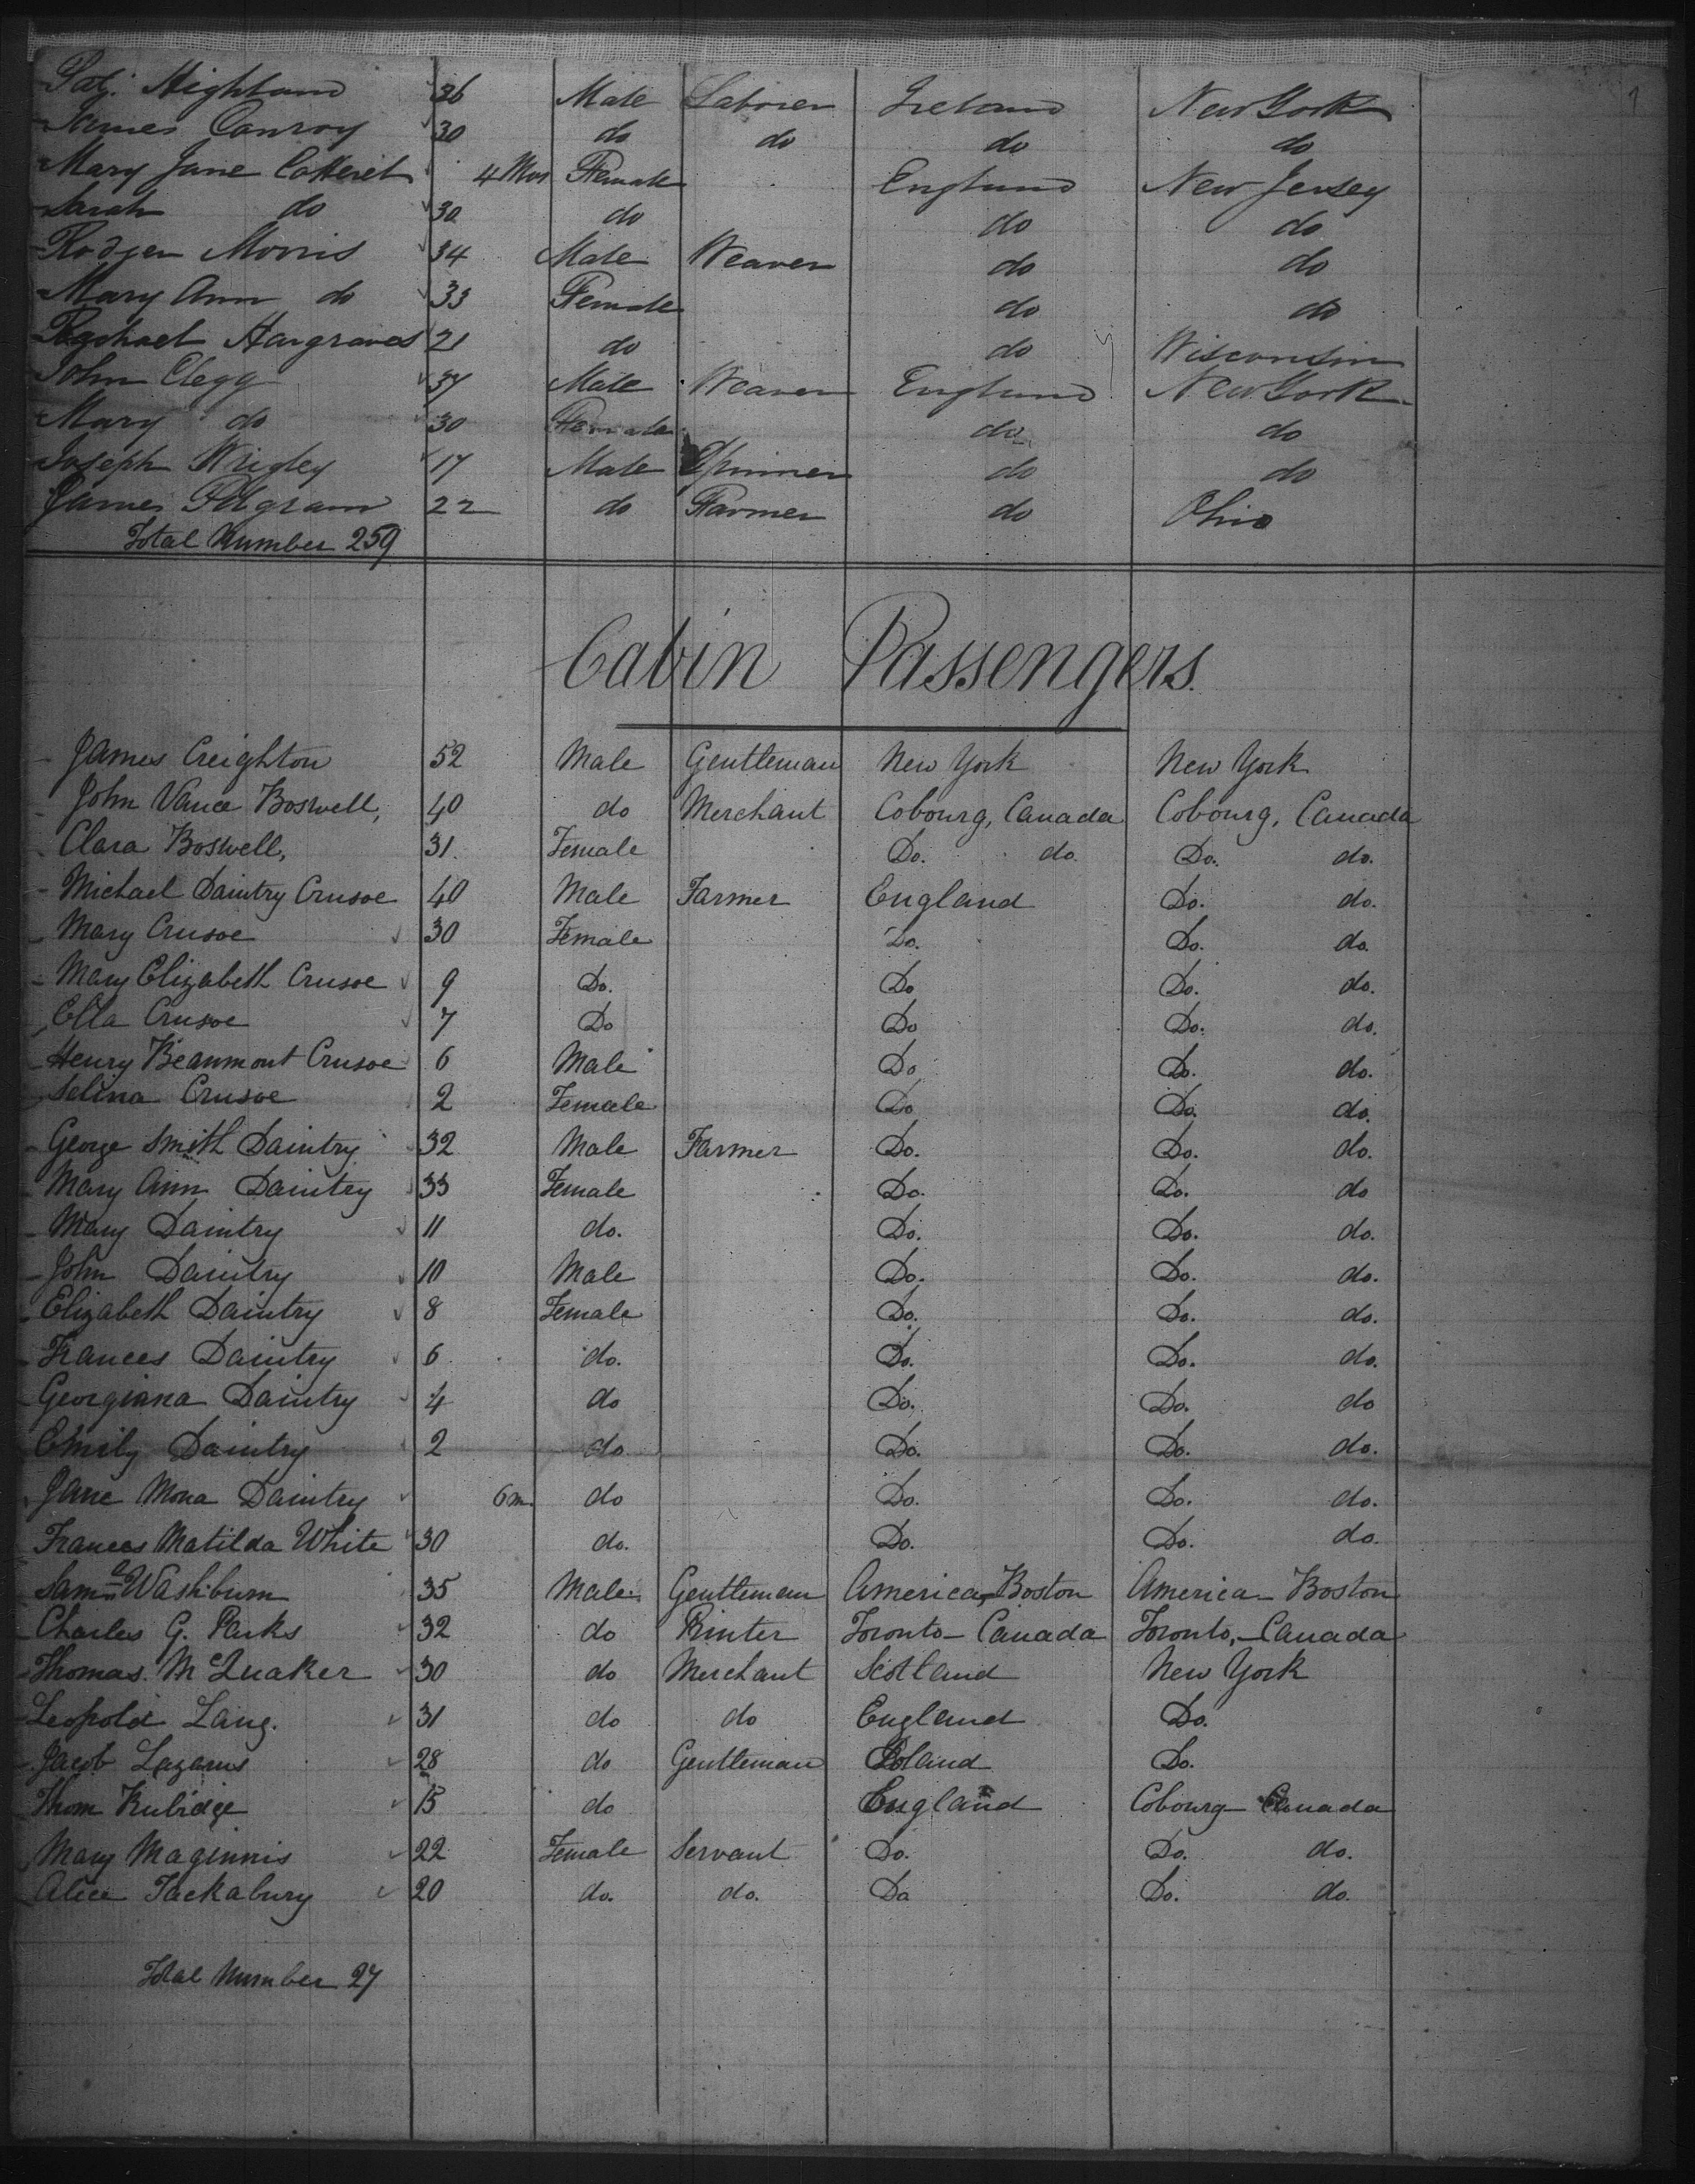 Pat. Highland 26 Male Laborer Ireland New York
James Conroy 30 do do do do
Mary Jane Cotteret 4 Mos Female England New Jersey
Sarah do 30 do do do
Rodger Morris 34 Male Weaver do do
Mary Ann do 33 Female do do
Rachael Hargraves 21 do do Wisconsin
John Clegg 37 Male Weaver England New York
Mary do 30 Female do do
Joseph Wrigley 17 Male Spinner do do
James Pilgram 22 do Farmer do Ohio
Total Number 259
Cabin Passengers.
James Creighton 52 Male Gentleman New York New York
John Vance Boswell, 40 do Merchant Cobourg, Canada Cobourg, Canada
Clara Boswell, 31. Female Do. do. Do. do.
Michael Daintry Crusoe 40 Male Farmer England Do. do.
Mary Crusoe 30 Female Do. Do. do.
Mary Elizabeth Crusoe 9 Do. Do Do. do.
Ella Crusoe 7 Do Do Do. do.
Henry Beaumont Crusoe 6 Male Do Do. do.
Selina Crusoe 2 Female Do Do. do.
George Smith Daintry 32 Male Farmer Do. Do. do.
Mary Ann Daintry 33 Female Do. Do. do
Mary Daintry 11 do. Do. Do. do.
John Daintry 10 Male Do. Do. do.
Elizabeth Daintry 8 Female Do. Do. do.
Frances Daintry 6 do. Do. Do. do.
Georgiana Daintry 4 do Do. Do. do
Emily Daintry 2 do Do. Do. do.
Jane Mona Daintry 6 m. do Do. Do. do.
Frances Matilda White 30 do. Do. Do. do.
Saml Washburn 35 Male Gentleman America-Boston America-Boston
Charles G. Parks 32 do Printer Toronto-Canada Toronto,-Canada
Thomas McQuaker 30 do Merchant Scotland New York
Leopold Lang. 31 do do England Do.
Jacob Lazarus 28 do Gentleman Poland Do.
Thom Rubidge 15 do England Cobourg-Canada
Mary Maginnis 22 Female Servant Do. Do. do.
Alice Tackabury 20 do. do. Do Do. do.
Total Number 27